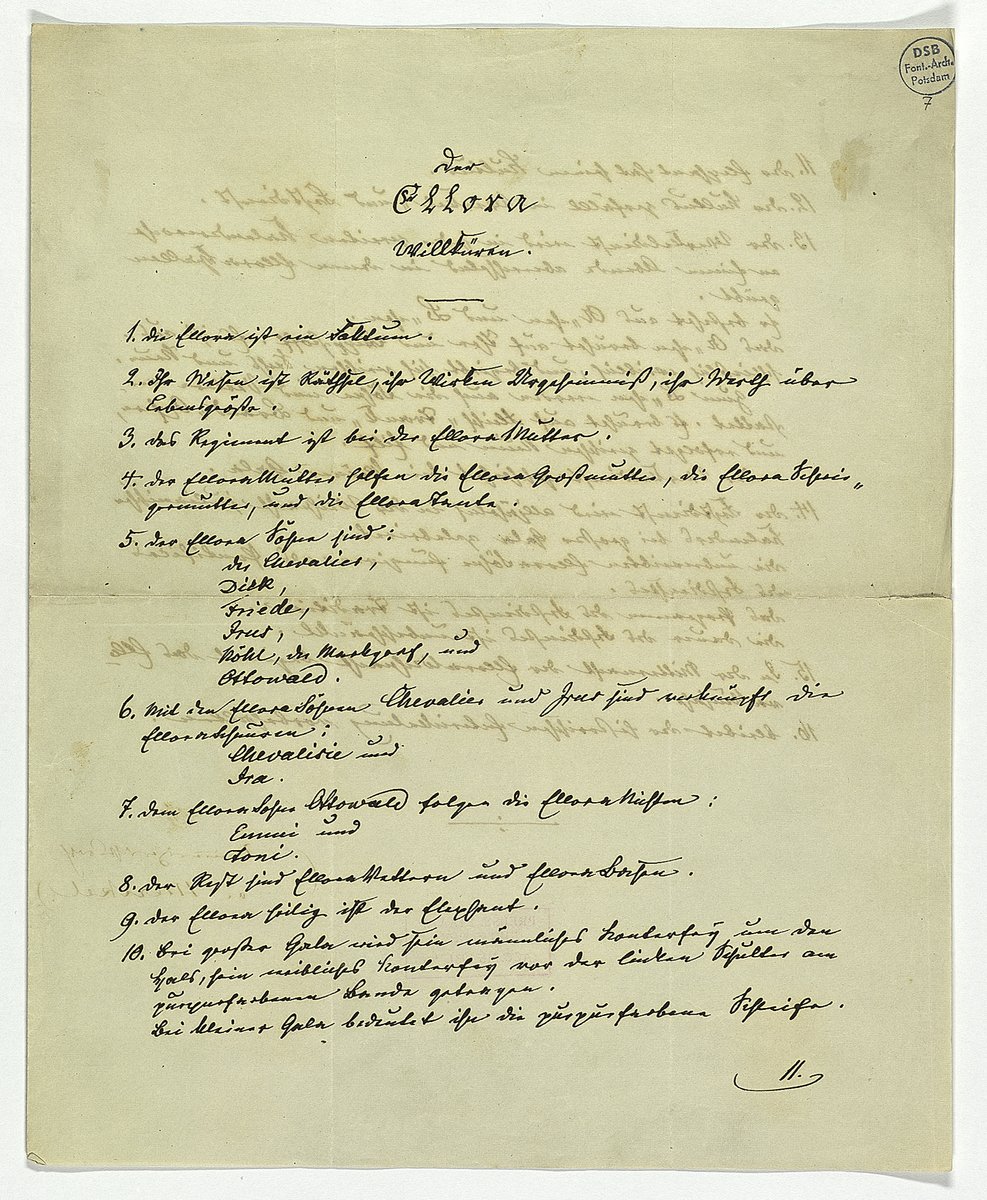 DSB
Font.-Arch.
Potsdam
7
Der
Ellora
Willküren.
1. die Ellora ist ein Faktum.
2. Ihr Wesen ist Räthsel, ihr Wirken Urgeheimniß, ihr Werth über
Lebensgröße.
3. das Regiment ist bei der Ellora Mutter.
4. der Ellora Mutter helfen die Ellora Großmutter, die Ellora Schwie-
germutter, und die Ellora Tante.
5. der Ellora Söhne sind:
der Chevalier,
Dick,
Friede,
Irus,
Röhl, der Markgraf, und
Ottowald.
6. Mit den Ellora Söhnen Chevalier und Irus sind verknüpft die
Ellora
Chevalisie und
Ira.
7. dem Ellora Sohne Ottowald folgen die Ellora Nichten:
Emmi und
Toni.
8. der Rest sind Ellora Vettern und Ellora Basen.
9. der Ellora heilig ist der Elephant.
10. Bei großer Gala wird sein männliches Konterfey um den
Hals, sein weibliches Konterfey vor der linken Schulter am
purpurfarbenen Bande getragen.
Bei kleiner Gala bedeutet ihn die purpurfarbene Schleife.
11.